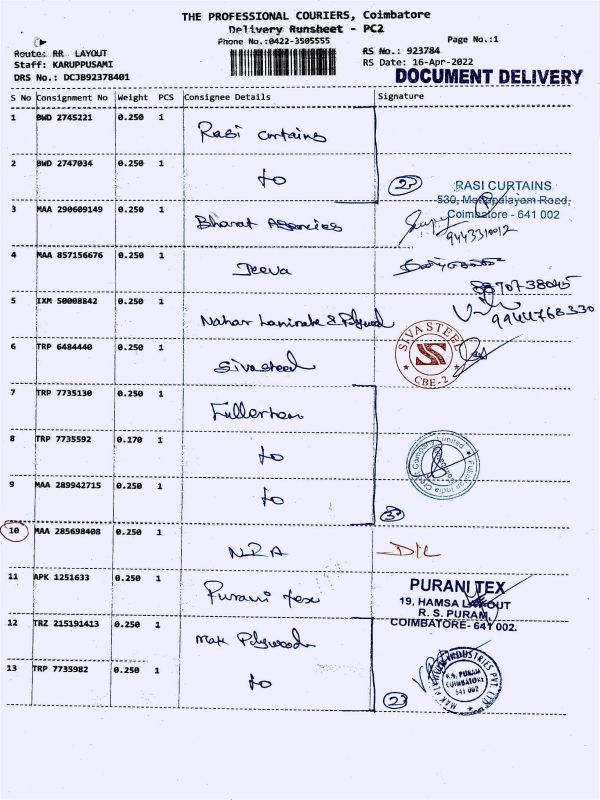 THE PROFESSIONAL COURIERS, Coimbatore
Delivery Runsheet - PC2
Phone No.:0422-3505555
Page No.:1
Route: RR LAYOUT
Staff: KARUPPUSAMI
DRS No.: DCJB92378401
RS No.: 923784
RS Date: 16-Apr-2022
DOCUMENT DELIVERY
S No Consignment No Weight PCS Consignee Details Signature
1 BWD 2745221 0.250 1 Rasi curtains
2 BWD 2747034 0.250 1 to 2
RASI CURTAINS
530, Mettupalayam Road,
Coimbatore - 641 002
3 MAA 290609149 0.250 1 Bharat Agencies
9443310012
4 MAA 857156676 0.250 1 Jeeva
8870738045
5 IXM 50008842 0.250 1 Nahar Laminate & Plywood
9944768330
6 TRP 6484440 0.250 1 Siva steel
SIVA STEEL
CBE-2
7 TRP 7735130 0.250 1 Fullerton
8 TRP 7735592 0.170 1 to
Fullerton India Credit Company Limited
9 MAA 289942715 0.250 1 to 3
10 MAA 285698408 0.250 1 NRA D/L
11 APK 1251633 0.250 1 Purani Tex
PURANI TEX
19, HAMSA LAYOUT
R. S. PURAM,
COIMBATORE- 641 002.
12 TRZ 215191413 0.250 1 Mak Plywoods
13 TRP 7735982 0.250 1 to 2
INDUSTRIES PVT. LTD
R.S. PURAM
COIMBATORE
641 002